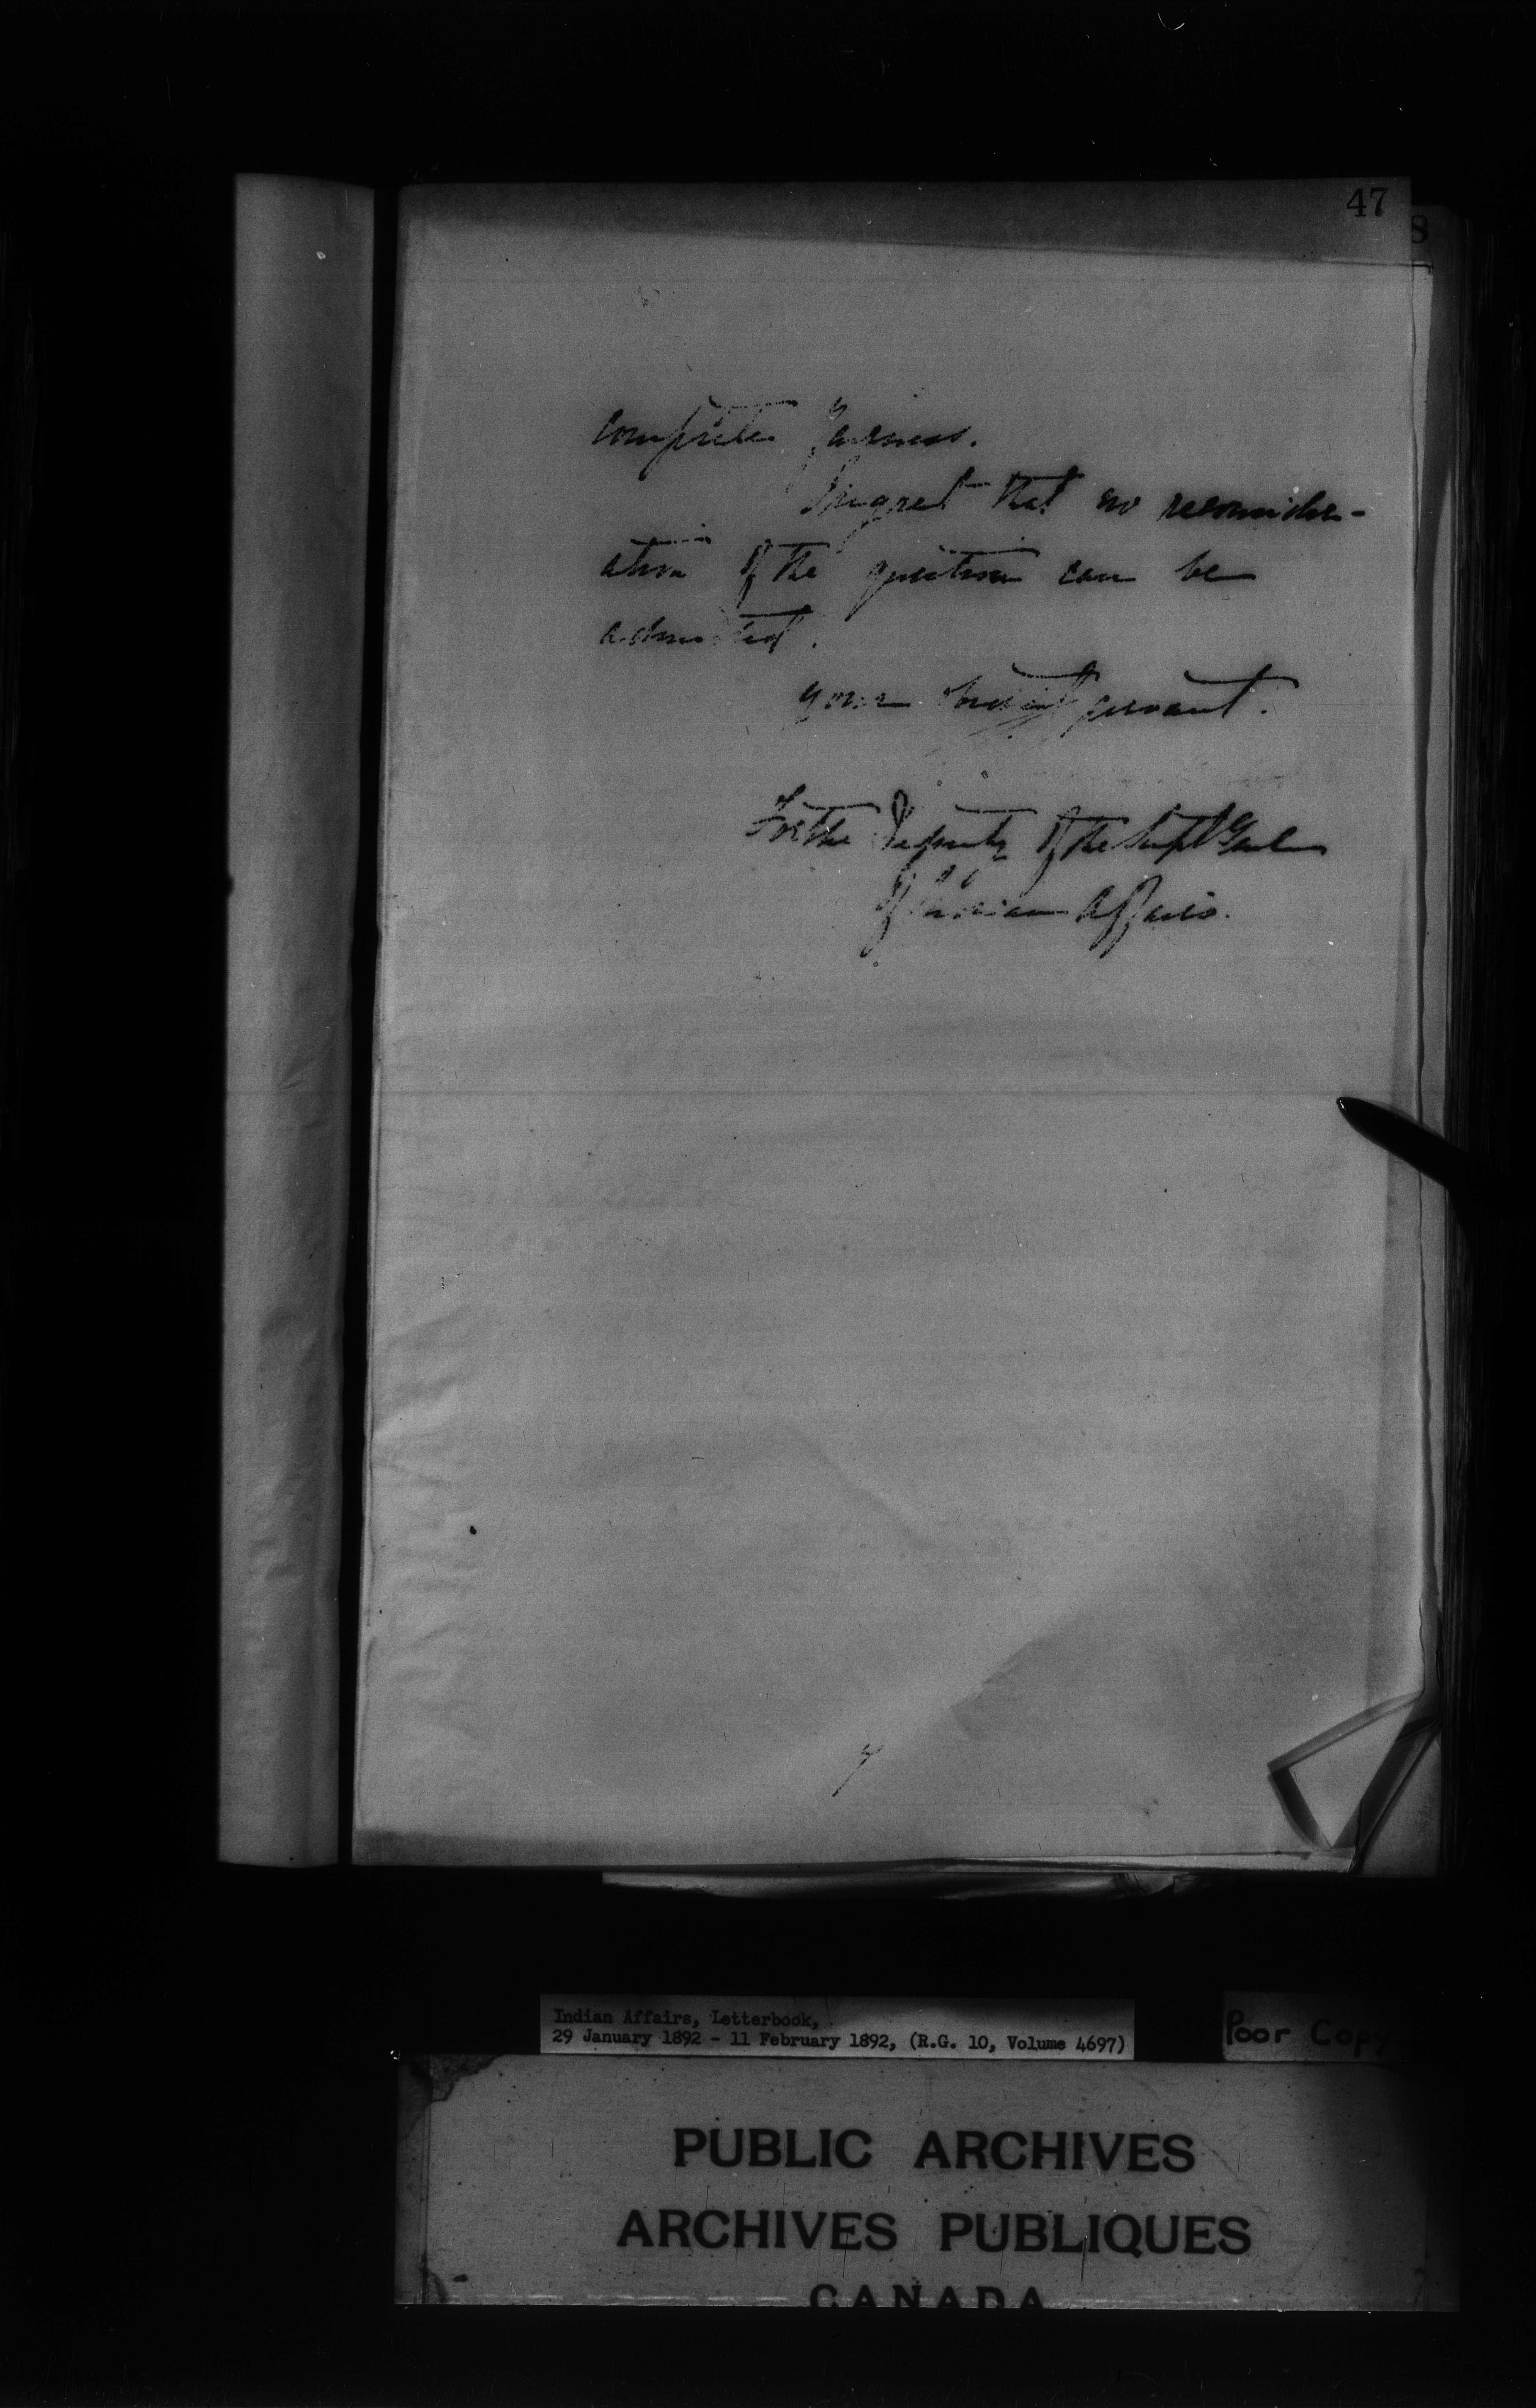 47
8
complete fairness.
I regret that no reconsider-
ation of the question can be
admitted.
Your obedient servant.
For the Deputy of the Supt Genl
of Indian Affairs.
Indian Affairs, Letterbook,
29 January 1892 - 11 February 1892, (R.G. 10, Volume 4697)
Poor Copy
PUBLIC ARCHIVES
ARCHIVES PUBLIQUES
CANADA